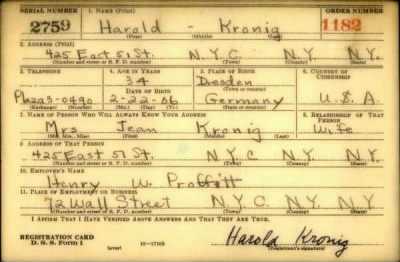 SERIAL NUMBER 1. NAME (Print) ORDER NUMBER
2759 Harold - Kronig 1182
(First) (Middle) (Last)
2. ADDRESS (Print)
425 East 51 St. N.Y.C. N.Y N.Y.
(Number and street or R. F. D. number) (Town) (County) (State)
3. TELEPHONE 4. AGE IN YEARS 5. PLACE OF BIRTH 6. COUNTRY OF CITIZENSHIP
34 Dresden
DATE OF BIRTH (Town or county)
Plaza3-0490 2-22-06 Germany U.S.A
(Exchange) (No.) (Mo.) (Day) (Yr.) (State or country)
7. NAME OF PERSON WHO WILL ALWAYS KNOW YOUR ADDRESS 8. RELATIONSHIP OF THAT PERSON
Mrs Jean Kronig Wife
(Mr., Mrs., Miss) (First) (Middle) (Last)
9. ADDRESS OF THAT PERSON
425 East 51 St. N.Y.C N.Y. N.Y.
(Number and street or R. F. D. number) (Town) (County) (State)
10. EMPLOYER'S NAME
Henry W Proffitt
11. PLACE OF EMPLOYMENT OR BUSINESS
72 Wall Street N.Y.C. N.Y. N.Y
(Number and street or R. F. D. number) (Town) (County) (State)
I AFFIRM THAT I HAVE VERIFIED ABOVE ANSWERS AND THAT THEY ARE TRUE.
REGISTRATION CARD
D. S. S. Form 1 (over) 16-17105 Harold Kronig
(Registrant's signature)